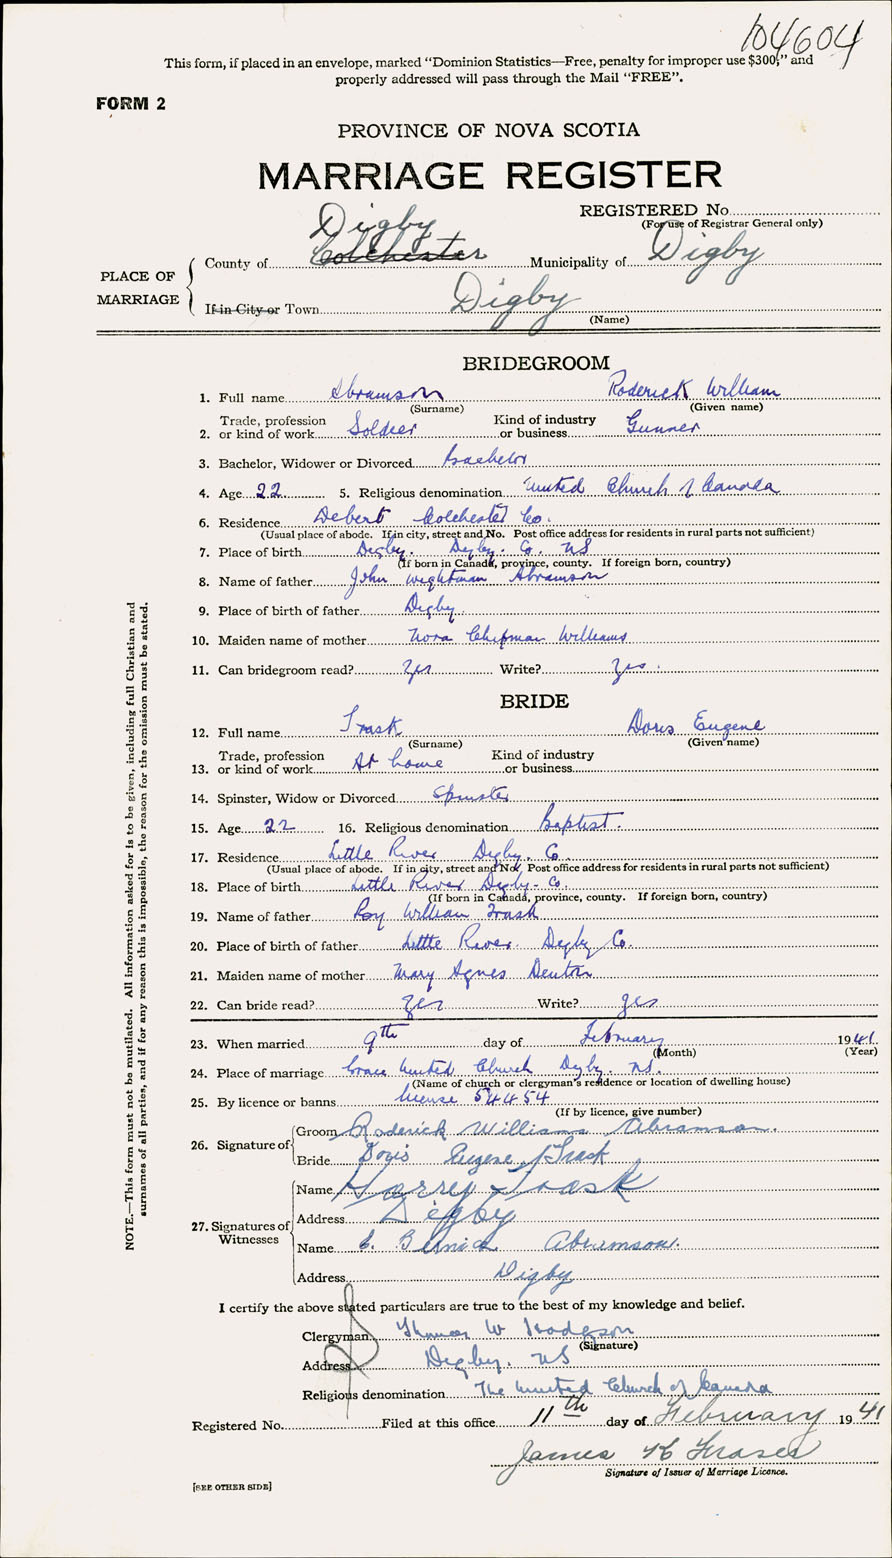 104604
This form, if placed in an envelope, marked "Dominion Statistics—Free, penalty for improper use $300," and
properly addressed will pass through the Mail "FREE".
FORM 2
PROVINCE OF NOVA SCOTIA
MARRIAGE REGISTER
REGISTERED No.
(For use of Registrar General only)
Digby
PLACE OF MARRIAGE
County of Colchester Municipality of Digby
If in City or Town Digby
(Name)
BRIDEGROOM
1. Full name Abramson Roderick William
(Surname) (Given name)
2. Trade, profession or kind of work Soldier Kind of industry or business Gunner
3. Bachelor, Widower or Divorced Bachelor
4. Age 22 5. Religious denomination United Church of Canada
6. Residence Debert Colchester Co.
(Usual place of abode. If in city, street and No. Post office address for residents in rural parts not sufficient)
7. Place of birth Digby. Digby. Co. NS
(If born in Canada, province, county. If foreign born, country)
8. Name of father John Wightman Abramson
9. Place of birth of father Digby.
10. Maiden name of mother Nora Chipman Williams
11. Can bridegroom read? Yes Write? Yes.
BRIDE
12. Full name Trask Doris Eugene
(Surname) (Given name)
13. Trade, profession or kind of work At home Kind of industry or business
14. Spinster, Widow or Divorced Spinster
15. Age 22 16. Religious denomination Baptist.
17. Residence Little River Digby. Co.
(Usual place of abode. If in city, street and No. Post office address for residents in rural parts not sufficient)
18. Place of birth Little River Digby - Co.
(If born in Canada, province, county. If foreign born, country)
19. Name of father Roy William Trask
20. Place of birth of father Little River. Digby Co.
21. Maiden name of mother Mary Agnes Denton
22. Can bride read? Yes Write? Yes
23. When married 9th day of February 1941
(Month) (Year)
24. Place of marriage Grace United Church Digby. NS.
(Name of church or clergyman's residence or location of dwelling house)
25. By licence or banns license 54454
(If by licence, give number)
26. Signature of
Groom Roderick Williams Abramson.
Bride Doris Eugene Trask
27. Signatures of Witnesses
Name Harry Trask
Address Digby
Name Abramson.
Address Digby
I certify the above stated particulars are true to the best of my knowledge and belief.
Clergyman Thomas W Hodgson
(Signature)
Address Digby. NS
Religious denomination The United Church of Canada
Registered No. Filed at this office 11th day of February 1941
James Fraser
Signature of Issuer of Marriage Licence.
[SEE OTHER SIDE]
NOTE.—This form must not be mutilated. All information asked for is to be given, including full Christian and
surnames of all parties, and if for any reason this is impossible, the reason for the omission must be stated.